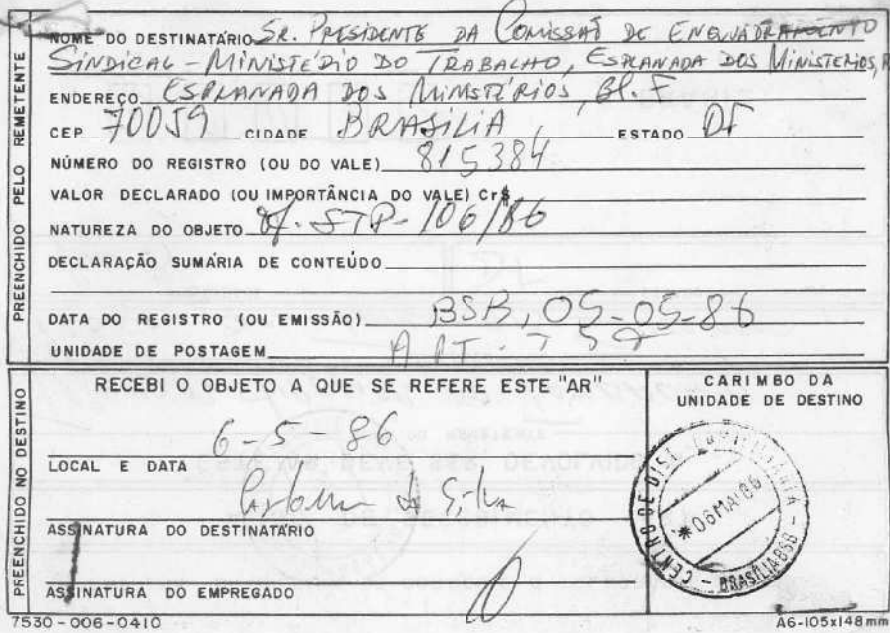 NOME DO DESTINATÁRIO SR. PRESIDENTE DA COMISSAÕ DE ENQUADRAMENTO
SINDICAL - MINISTÉRIO DO TRABALHO, ESPLANADA DOS MINISTERIOS,
ENDEREÇO ESPLANADA DOS MINISTÉRIOS, Bl. F
CEP 70059 CIDADE BRASÍLIA, ESTADO DF
NÚMERO DO REGISTRO (OU DO VALE) 815384
VALOR DECLARADO (OU IMPORTÂNCIA DO VALE) Cr$
NATUREZA DO OBJETO Of. STP-106/86
DECLARAÇÃO SUMÁRIA DE CONTEÚDO
DATA DO REGISTRO (OU EMISSÃO) BSB, 05-05-86
UNIDADE DE POSTAGEM
PREENCHIDO PELO REMETENTE
RECEBI O OBJETO A QUE SE REFERE ESTE "AR"
6-5-86
LOCAL E DATA
ASSINATURA DO DESTINATÁRIO
ASSINATURA DO EMPREGADO
PREENCHIDO NO DESTINO
CARIMBO DA
UNIDADE DE DESTINO
CENTRO DE DIST. DOMICILIÁRIA
*06MAI86
- BRASÍLIA BSB -
7530-006-0410
A6-105x148mm